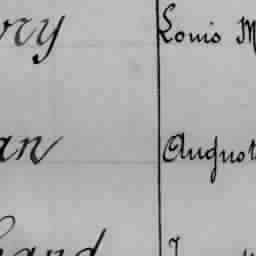 ory Louis M
an August
hand J